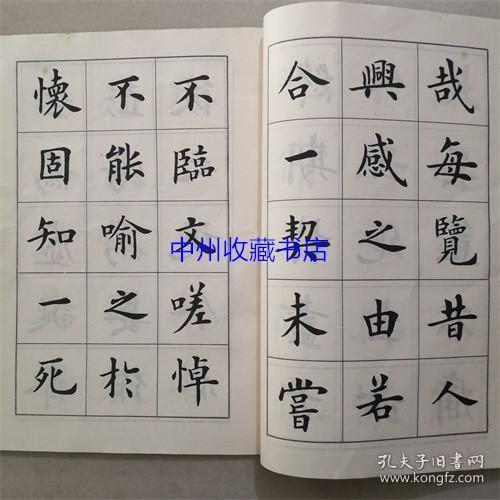 哉每覽昔人
興感之由若
合一契未嘗
不臨文嗟悼
不能喻之於
懷固知一死
中州收藏书店
孔夫子旧书网
www.kongfz.com